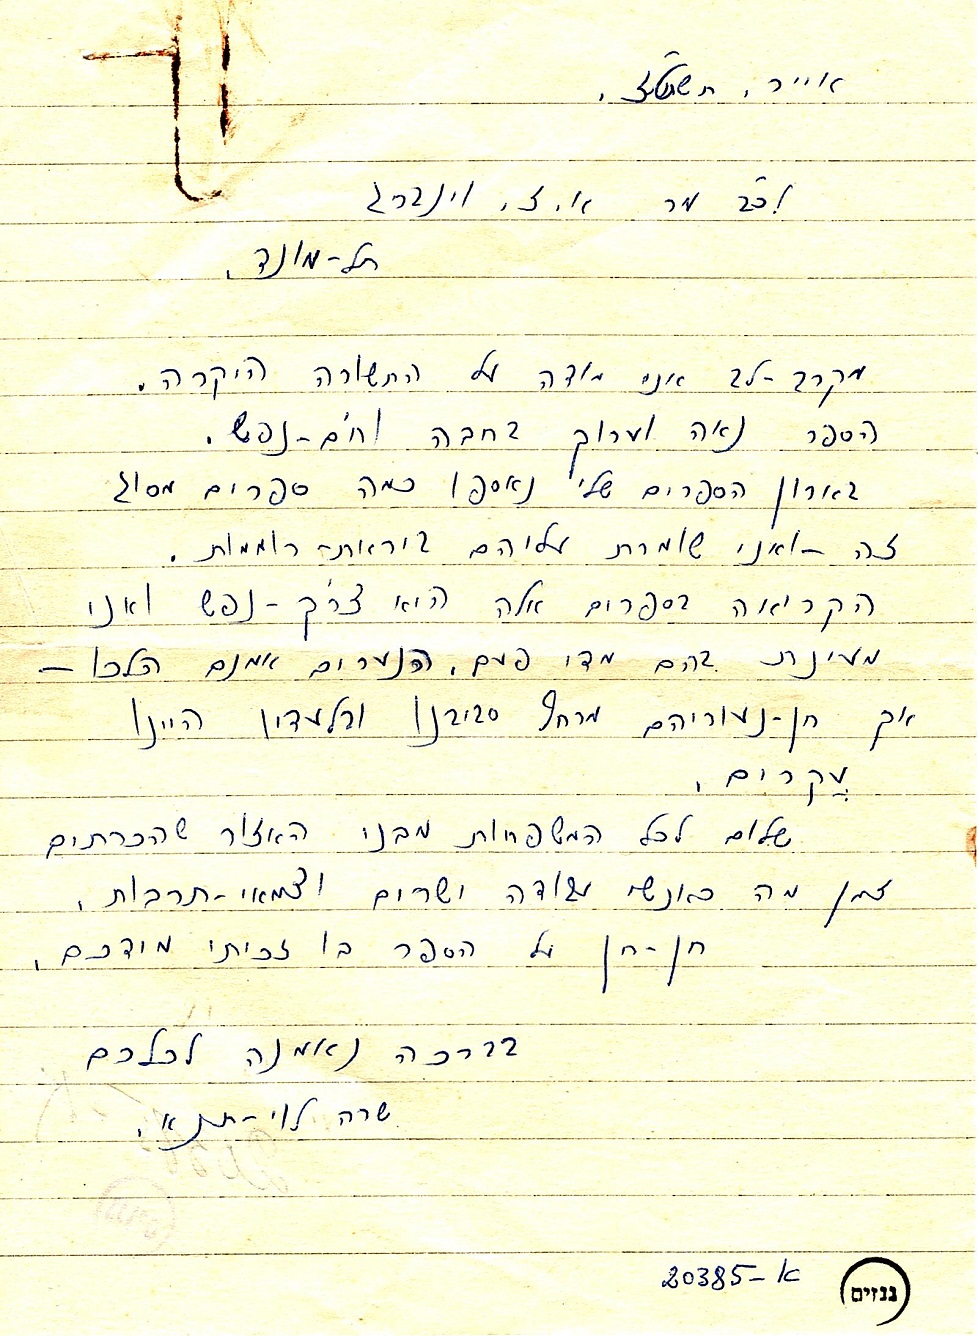 אייר, תשט"ז,
לכ' מר א. ז. וינברג
תל-מונד,
מקרב-לב אני מודה על התשורה היקרה.
הספר נאה וערוך בחבה וחֹם-נפש.
בארון הספרים שלי נאספו כמה ספרים מסוג
זה – ואני שומרת עליהם ביראת-רוממות.
הקריאה בספרים אלה היא צרֹך-נפש ואני
מעינת בהם מדי פעם, הנערים אמנם הלכו –
אך חן-נעוריהם מרחף סביבנו ובלעדיו היינו
עקרים,
שלום לכל המשפחות מבני האזור שהכרתים
מה כאנשי עבודה ישרים וצמאי-תרבות,
חן-חן על הספר בו זכיתי מידכם,
בברכה נאמנה לכלכם
שרה לוי-תנא,
א-20385
גנזים